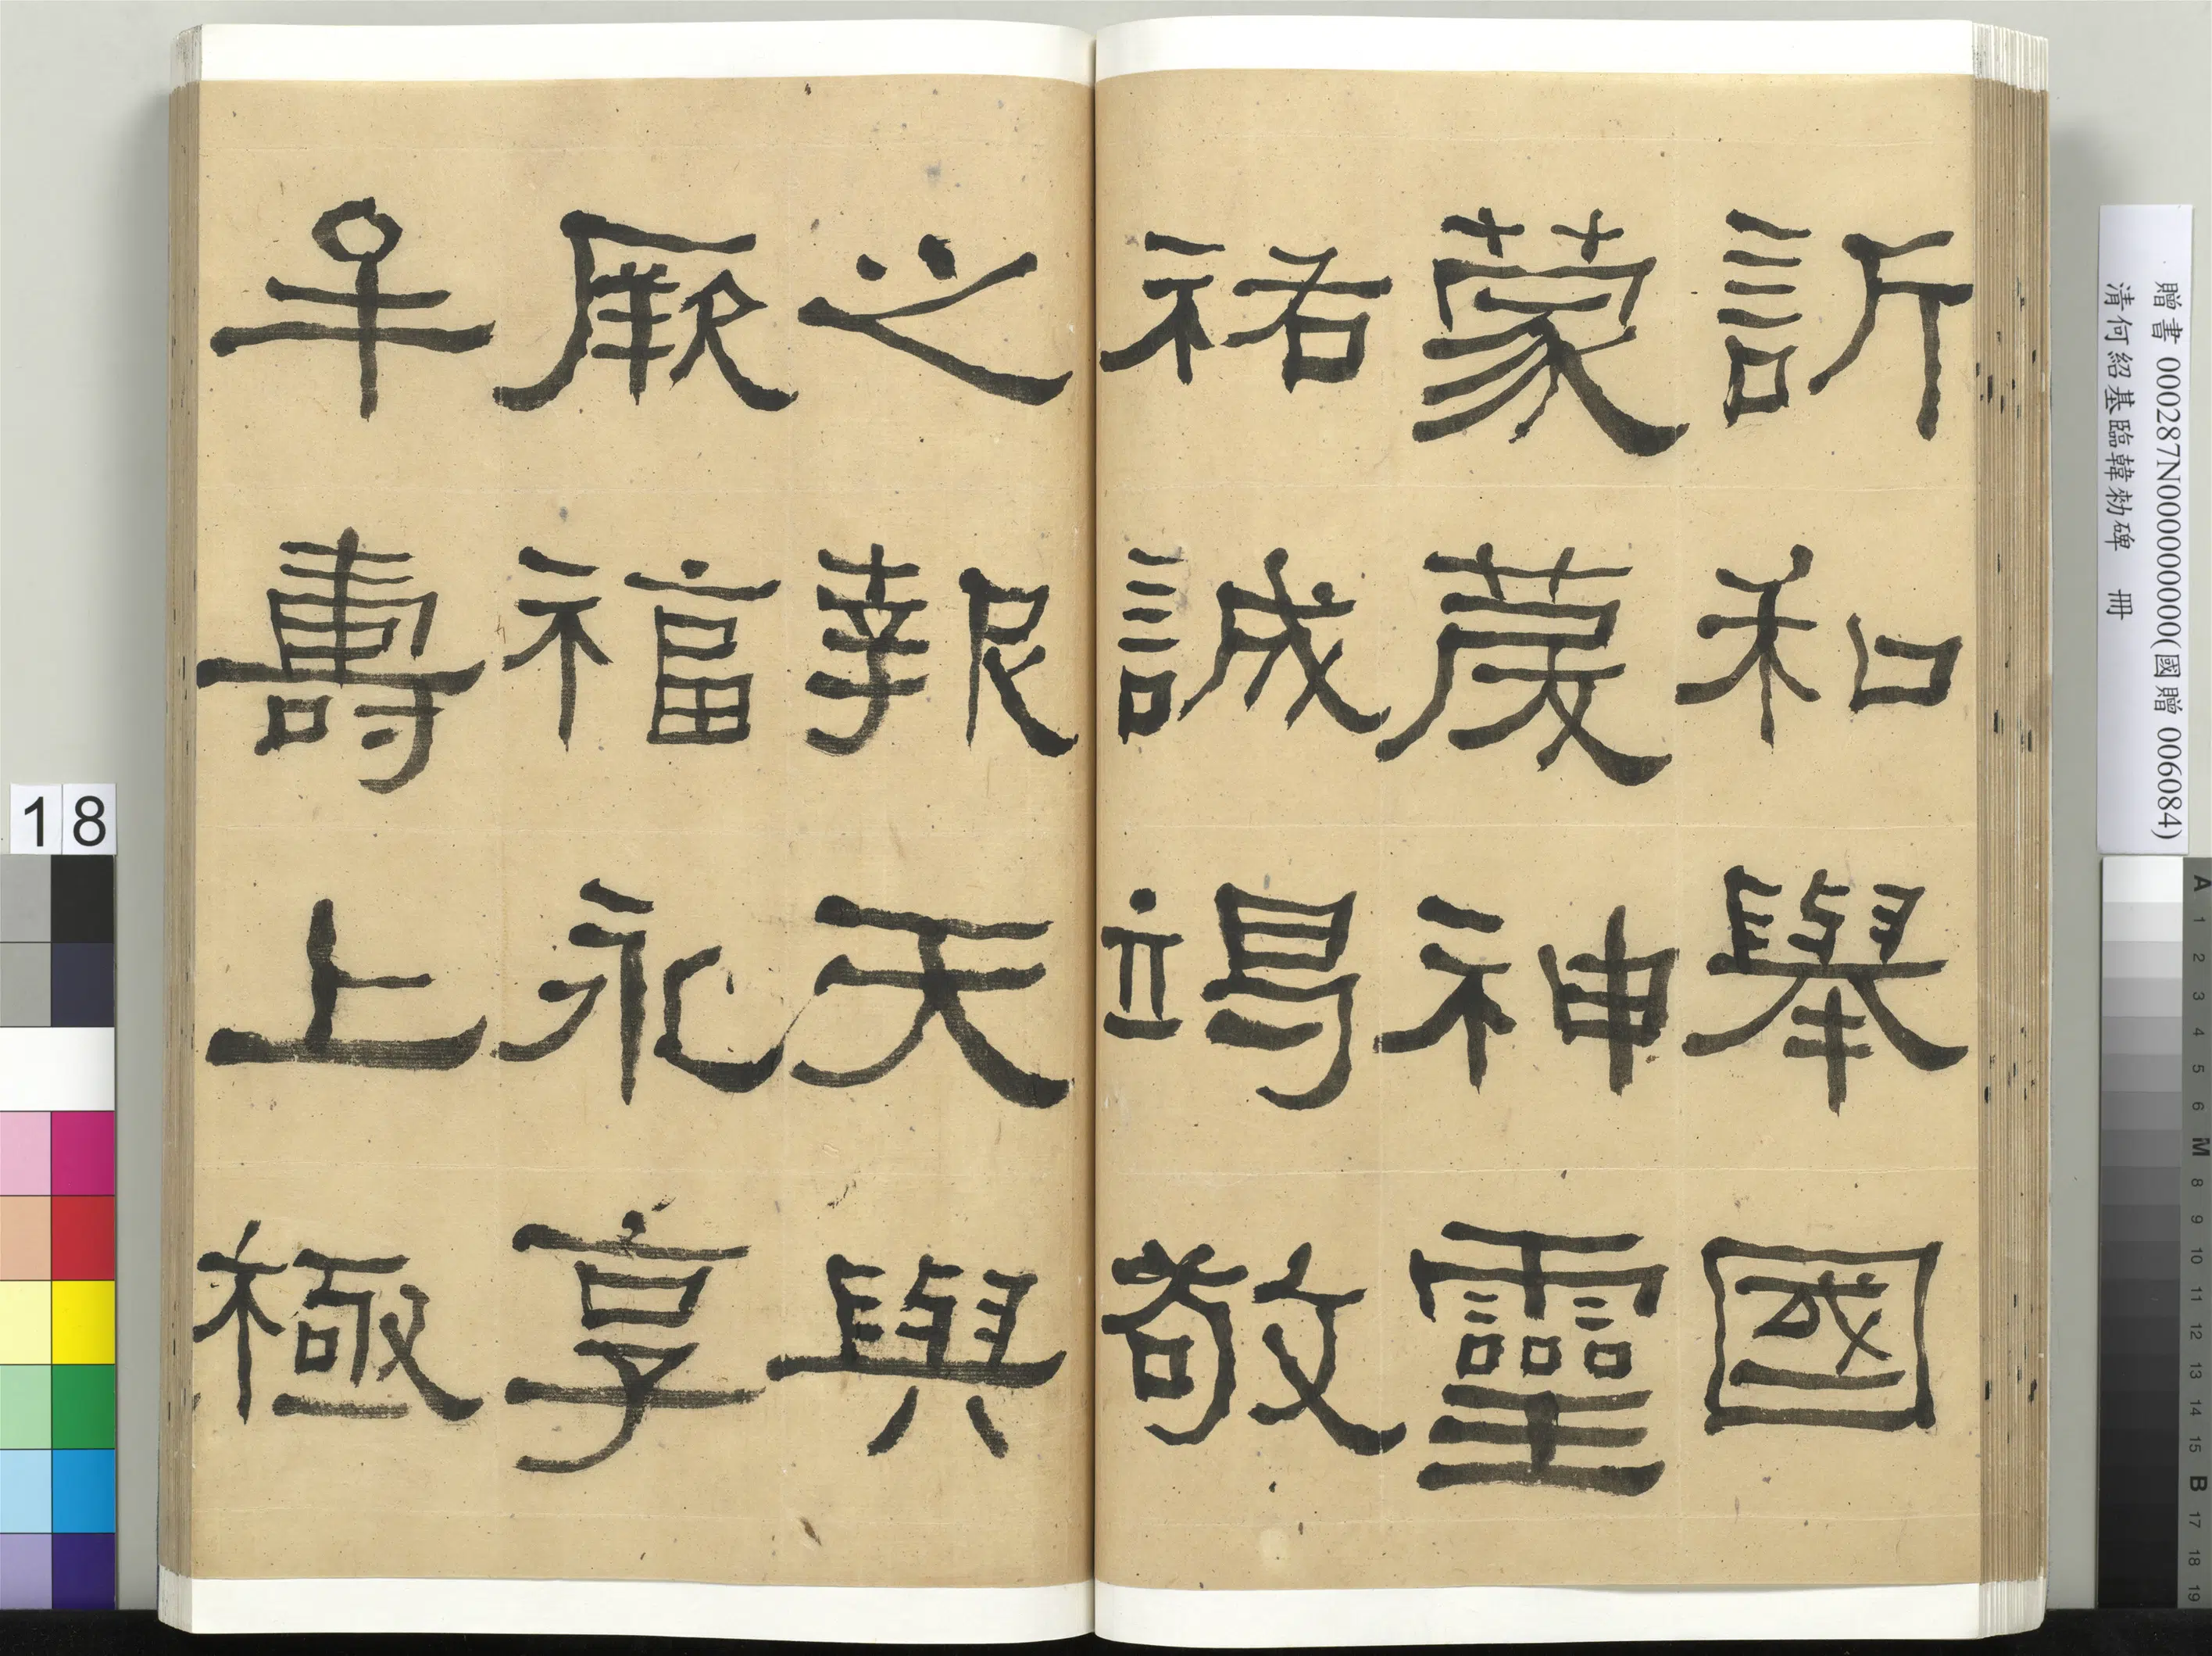 訢和舉國
蒙慶神靈
祐誠竭敬
之報天與
厥福永享
牟壽上極
贈書 000287N000000000(國贈 006084)
清何紹基臨韓勑碑 冊
18
A 1 2 3 4 5 6 M 8 9 10 11 12 13 14 15 B 17 18 19